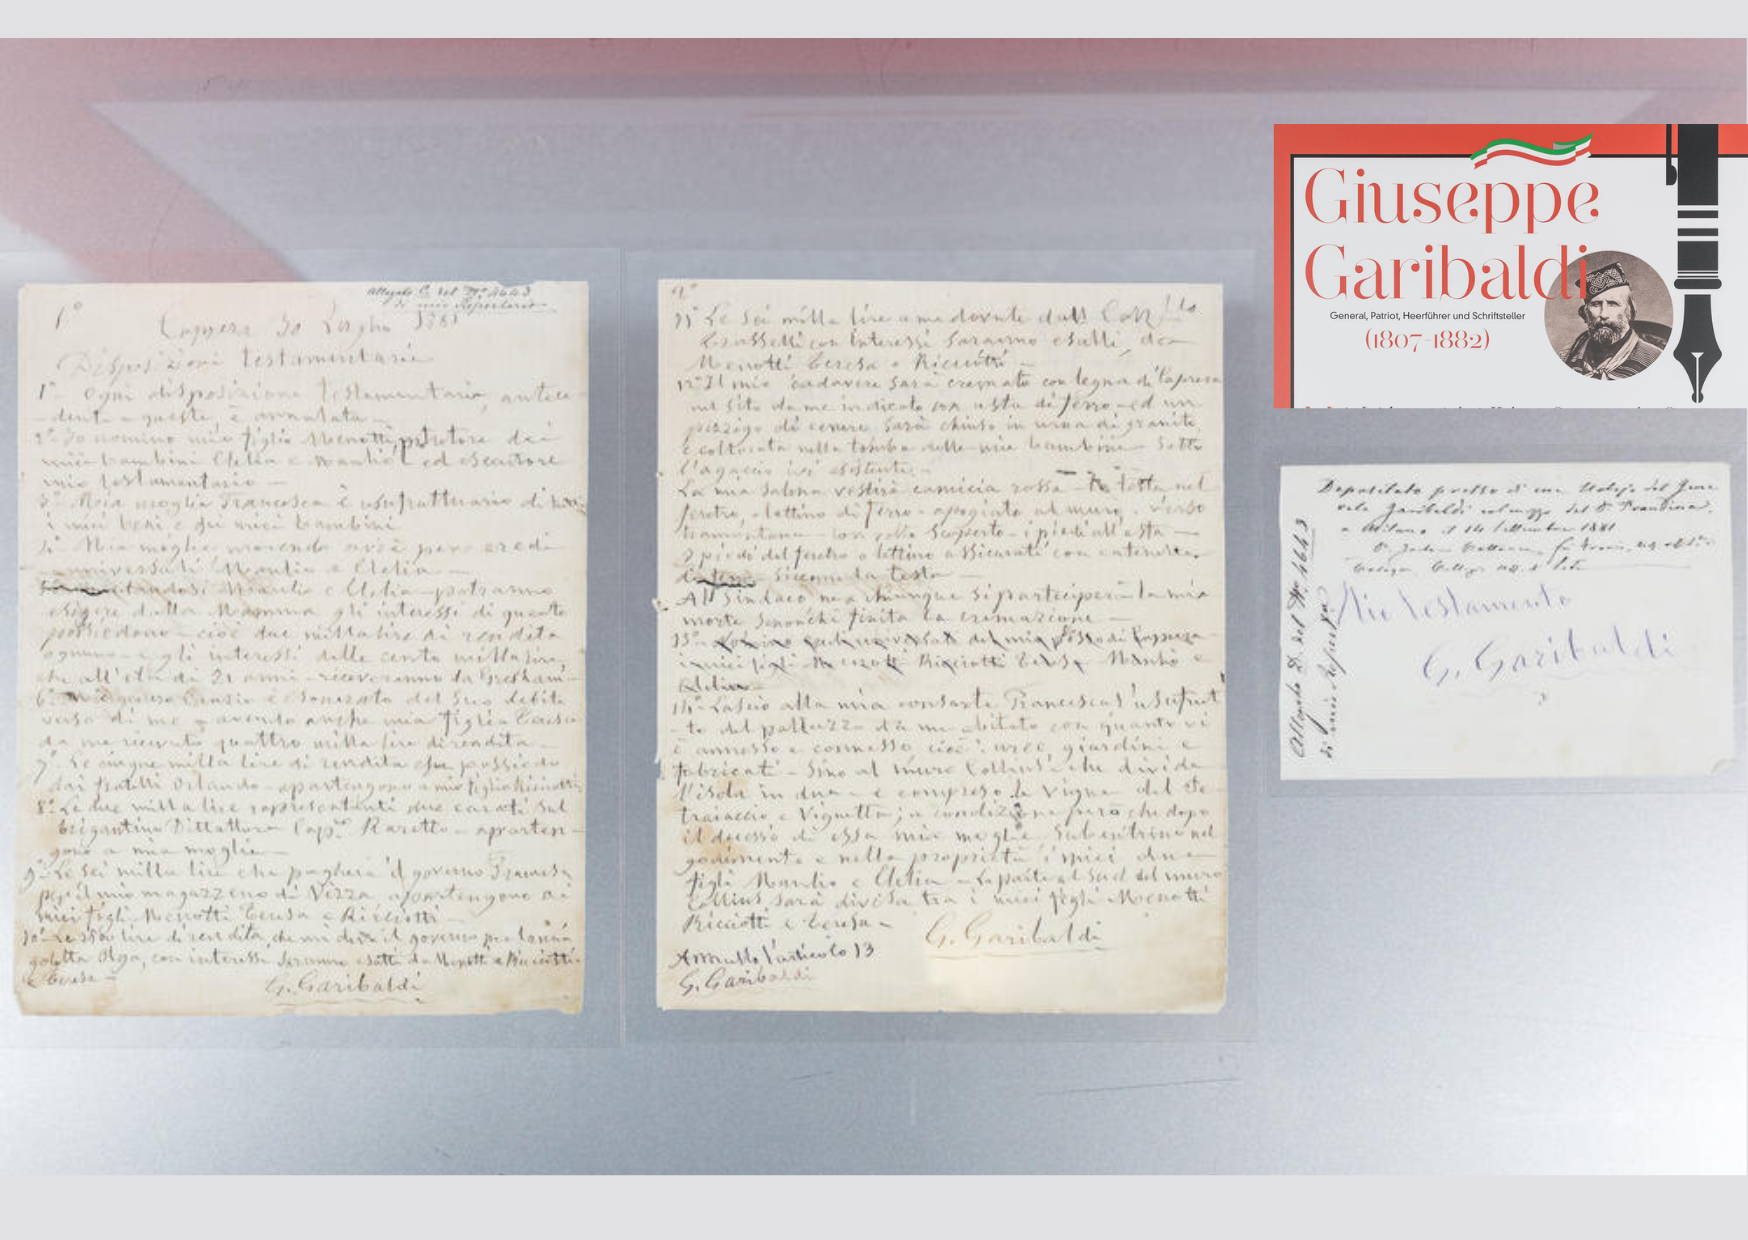 1°
Allegato C. del N° 4643
di mio Repertorio
Caprera 30 Luglio 1881
Disposizioni testamentarie
1° Ogni disposizione testamentaria, antece-
dente a queste, è annulata
2° Io nomino mio figlio Menotti, tutore dei
miei bambini Clelia e Manlio ed esecutore
mio testamentario
3° Mia moglie Francesca è usufruttuario di
i miei beni e dei miei bambini
Mia moglie morendo avrà per eredi
universali Manlio e Clelia
Manlio e Clelia potranno
esigere dalla Mamma gli interessi di quanto
possiedono cioè due milla lire di rendita
ognuno e gli interessi delle cento milla lire,
che all'età di 21 anni riceveranno da Gresham
6° Canzio è esonerato del suo debito
verso di me avendo anche mia figlia Teresa
da me ricevuto quattro milla lire di rendita
7° Le cinque milla lire di rendita che possiedo
dai fratelli Orlando appartengono a mio figlio Ricciotti
8° Le due milla lire rappresentanti due carati sul
brigantino Dittatore Capn Razetto apparten-
gono a mia moglie
9° Le sei milla lire che pagherà il governo Francese
pel mio magazzeno di Nizza appartengono ai
miei figli Menotti Teresa e Ricciotti
10° lire di rendita, che mi deve il governo per la mia
goletta Olga, con interessi saranno esatti da Menotti e Ricciotti
e Teresa
G. Garibaldi
2°
11° Le sei milla lire a me dovute dall
con interessi saranno esatti, da
Menotti Teresa e Ricciotti
12° Il mio cadavere sarà cremato con legna di Caprera
nel sito da me indicato con asta di ferro ed un
pizzigo di cenere sarà chiuso in urna di granito,
e collocata nella tomba delle mie bambine sotto
l'agaccio ivi esistente.
La mia salma vestirà camicia rossa nel
feretro, o lettino di ferro apogiato al muro, verso
tramontana con volto scoperto i piedi all'asta
I piedi del feretro o lettino assicurati con catenelle
siccome la testa
Al Sindaco ne a chiunque si parteciperà la mia
morte senonchè finita la cremazione
13°
i miei figli Menotti Ricciotti Teresa Manlio e
Clelia
14° Lascio alla mia consorte Francesca l'usufrut
to del palazzo da me abitato con quanto vi
è annesso e connesso cioè: aree, giardini e
fabricati sino al muro Collins che divide
l'isola in due e compreso la vigna del
e Vignetta; a condizione però che dopo
il decesso di essa mia moglie subentrino nel
godimento e nella proprietà i miei due
figli Manlio e Clelia La parte al Sud del muro
Collins sarà divisa tra i miei figli Menotti
Ricciotti e Teresa
G. Garibaldi
Annullo l'articolo 13
G. Garibaldi
Giuseppe
Garibaldi
General, Patriot, Heerführer und Schriftsteller
(1807-1882)
Depositato presso di me del Gene
rale Garibaldi col mezzo del
a Milano il 14 Settembre 1881
Allegato D. del N° 4643
di mio Repertorio
Mio Testamento
G. Garibaldi